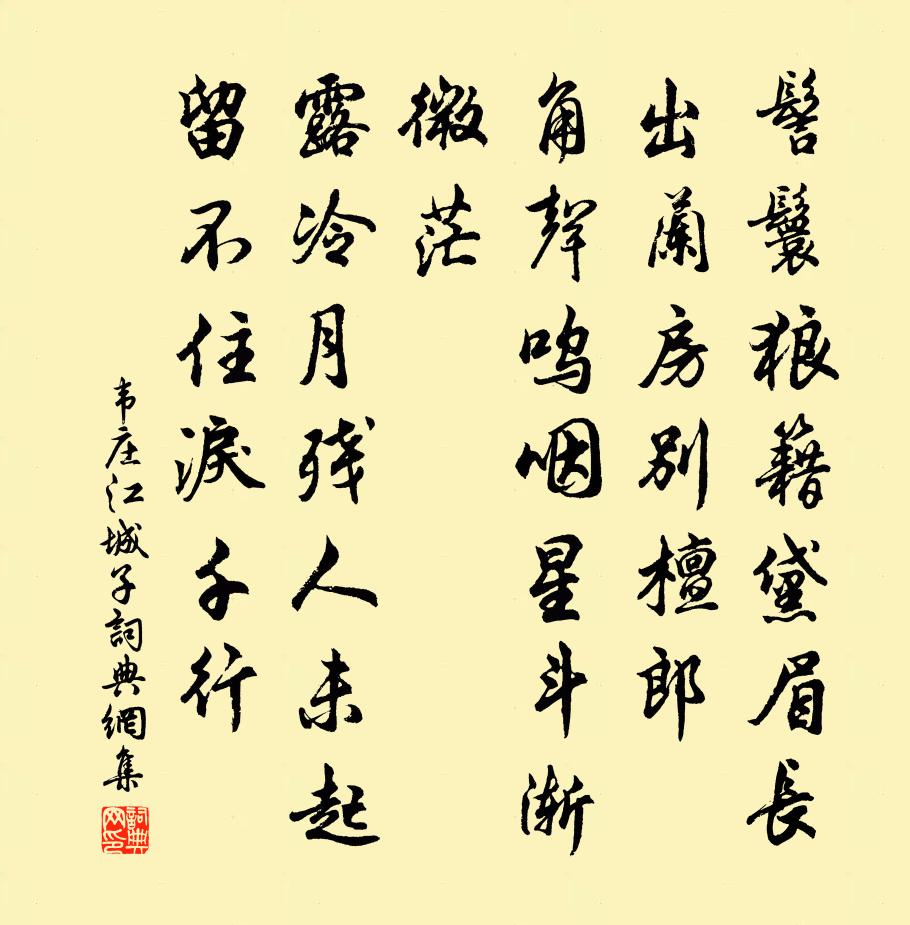 髻鬟狼籍黛眉長
出蘭房別檀郎
角聲嗚咽星斗漸
微茫
露冷月残人未起
留不住淚千行
韦庄江城子詞典網集
詞典网印